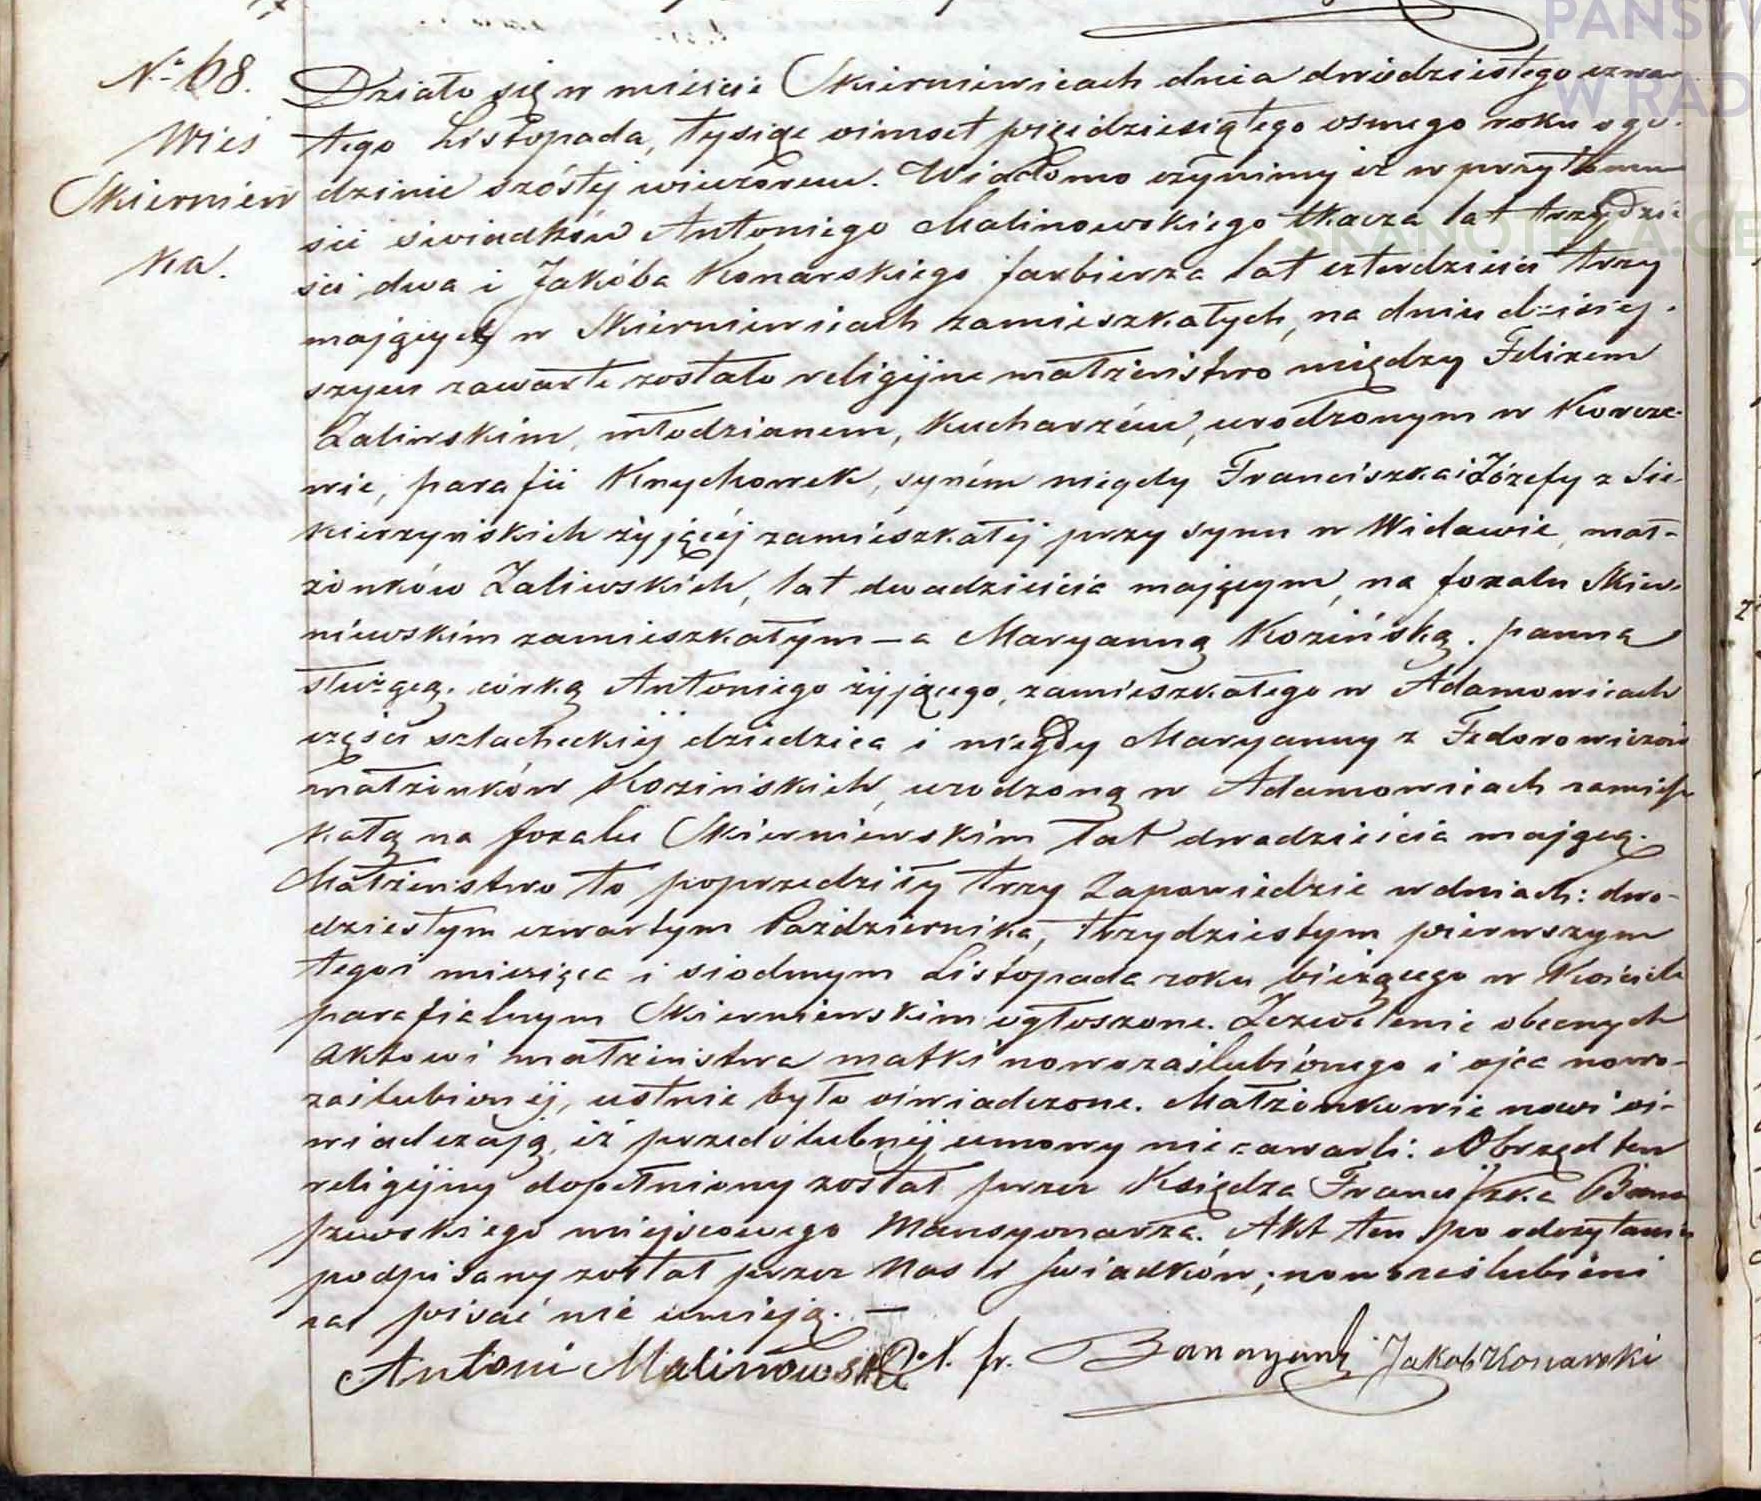 PAŃSTW
W RAD
SKANOTEKA.GE
№ 68.
Wieś
Skierniew
ka.
Działo się w mieście Skierniewicach dnia dwódziestego czwar
tego Listopada, tysiąc ośmset pięćdziesiątego osmego roku o go-
dzinie szóstej wieczorem. Wiadomo czynimy iż w przytomno
ści świadków Antoniego Malinowskiego tkacza lat trzydzie
ści dwa i Jakóba Konarskiego farbierza lat czterdzieści trzy
mających w Skierniewicach zamieszkałych, na dniu dzisiej-
szym zawarte zostało religijne małżeństwo między Felixem
Zaliwskim, młodzianem, kucharzem, urodzonym w Korcze-
wie, parafii Knychowek, synem niegdy Franciszka i Józefy z Sie-
kierzyńskich żyjącéj zamieszkałej przy synu w Widawie, mał-
żonków Zaliwskich, lat dwadzieścia mającym, na foxalu Skier-
niewskim zamieszkałym – a Maryanną Kozińską. panną
służącą, córką Antoniego żyjącego, zamieszkałego w Adamowicach
części szlacheckiej dziedzica i niegdy Maryanny z Fedorowiczów
małżonków Kozińskich, urodzoną w Adamowicach zamiesz
kałą na foxalu Skierniewskim lat dwadzieścia mającą.
Małżeństwo to poprzedziły trzy Zapowiedzie w dniach: dwó-
dziestym czwartym Października, trzydziestym pierwszym
tegoż miesiąca i siodmym Listopada roku bieżącego w Kościele
parafialnym Skierniewskim ogłoszone. Zezwolenie obecnych
Aktowi małżeństwa matki nowozaślubionego i ojca nowo-
zaślubionej, ustnie było oświadczone. Małżonkowie nowi oś-
wiadczają, iż przedślubnej umowy nie zawarli: Obrzęd ten
religijny dopełniony został przez Księdza Franciszka
miejscowego Mansyonarza. Akt ten po odczytaniu
podpisany został przez Nas i świadków; nowozaślubieni
zaś pisać nie umieją. —
Antoni Malinowski Jakob Konarski